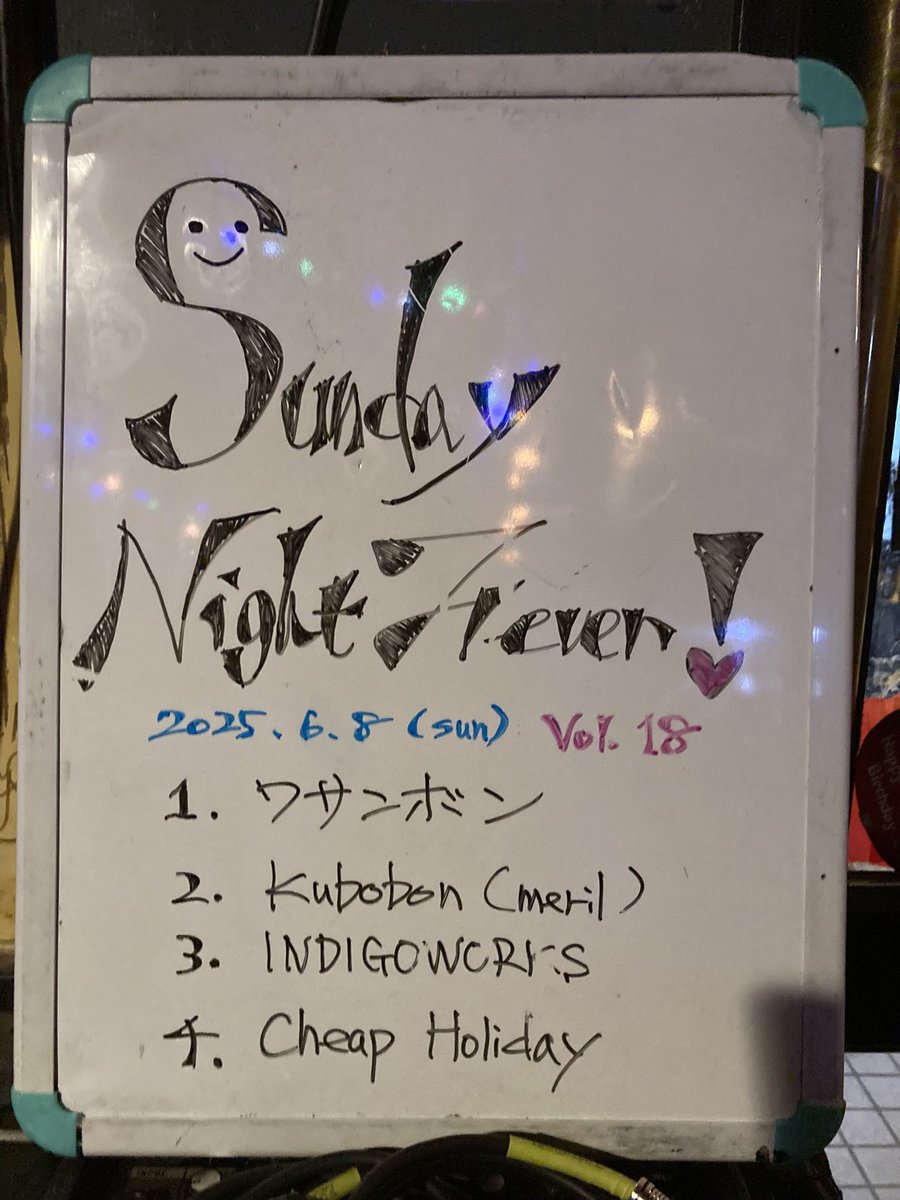 Sunday
Night Fever!
2025.6.8 (sun) Vol.18
1. ワサンボン
2. Kubobon (meril)
3. INDIGOWORKS
4. Cheap Holiday
Happy
Birthday
INPUT